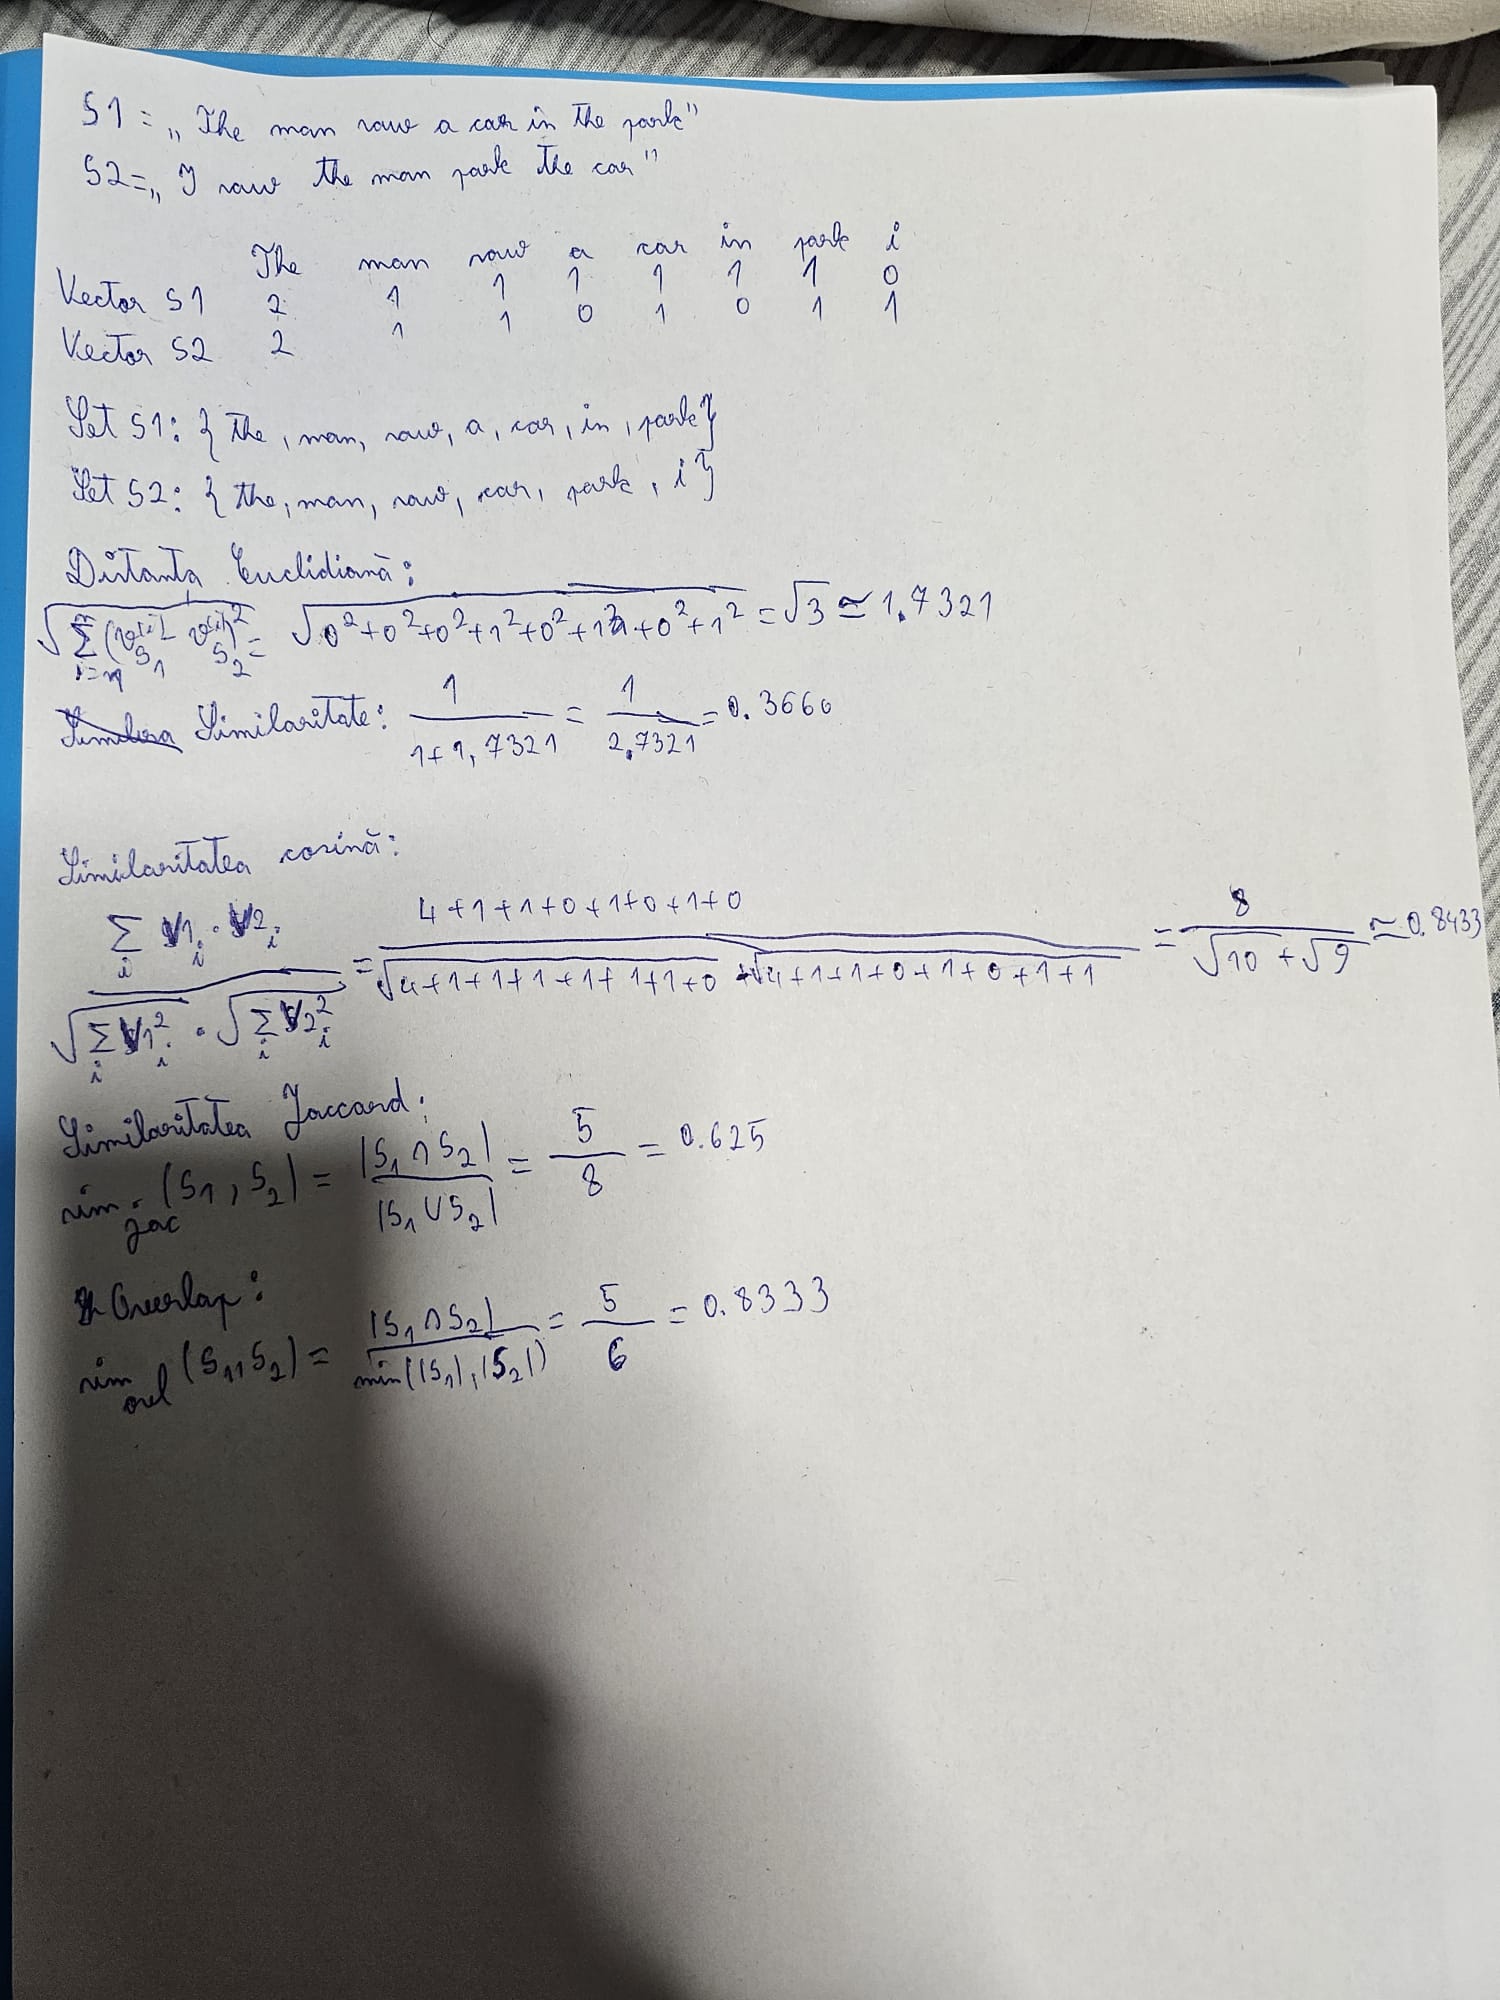 S1 = „The man saw a car in the park"
S2 = „I saw the man park the car"
The man saw a car in park i
Vector S1 2 1 1 1 1 1 1 0
Vector S2 2 1 1 0 1 0 1 1
Set S1: { the, man, saw, a, car, in, park}
Set S2: { the, man, saw, car, park, i}
Distanța Euclidiană:
√(Σ (v_S1^(i) - v_S2^(i))² = √0²+0²+0²+1²+0²+1²+0²+1² = √3 ≃ 1.7321
Similaritate: 1/(1+1,7321) = 1/2,7321 = 0.3660
Similaritatea cosină:
Σ_i V1_i · V2_i / (√Σ_i V1_i² · √Σ_i V2_i²) = (4+1+1+0+1+0+1+0) / (√4+1+1+1+1+1+1+0 · √4+1+1+0+1+0+1+1) = 8 / (√10 + √9) ≃ 0.8433
Similaritatea Jaccard:
sim_jac (S1, S2) = |S1 ∩ S2| / |S1 ∪ S2| = 5/8 = 0.625
Overlap:
sim_ovl (S1, S2) = |S1 ∩ S2| / min(|S1|, |S2|) = 5/6 = 0.8333